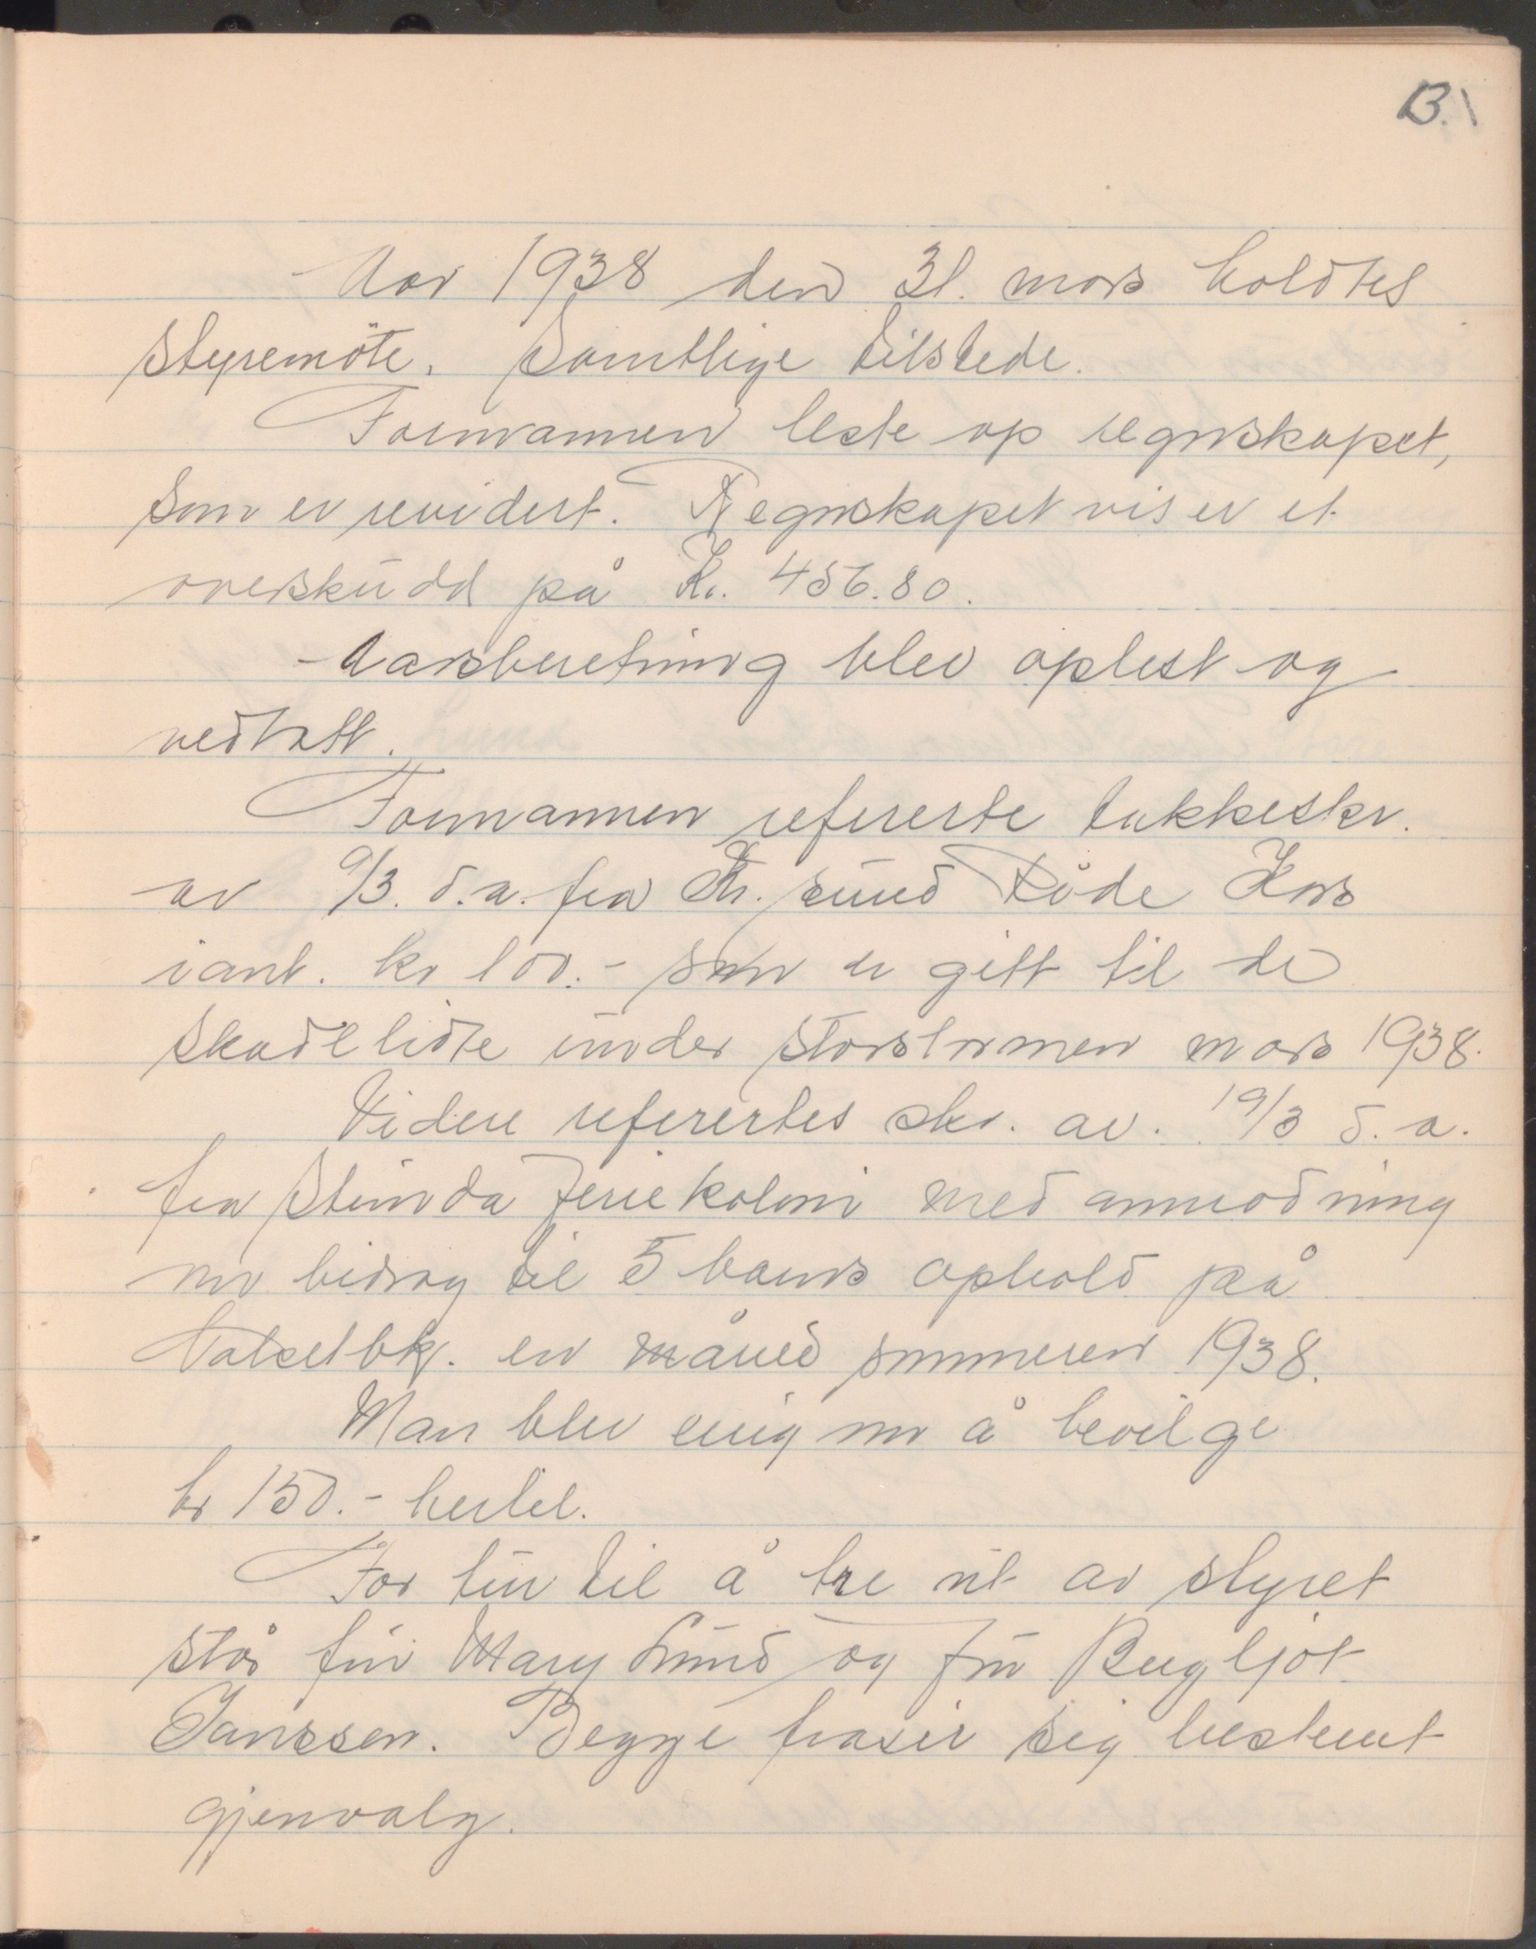 13.
Aar 1938 den 31. mars holdtes
styremöte. Samtlige tilstede.
Formannen leste op regnskapet,
som er revidert. Regnskapet viser et
overskudd på Kr. 456.80.
Aarsberetning blev oplest og
vedtatt.
Formannen refererte takkeskr.
av 9/3. d.a. fra Kr. sund Røde Kors
i anl. kr 100.- som er gitt til de
skadelidte under storstormen mars 1938.
Videre refertes skr. av. 19/3 d. a.
fra Strinda Feriekoloni med anmodning
om bidrag til 5 barns ophold på
en måned sommeren 1938.
Man blev enig om å bevilge
kr 150.- hertil.
For tur til å tre ut av styret
står fru Mary Lund og fru Bergljot
Janssen. Begge frasier sig bestemt
gjenvalg.